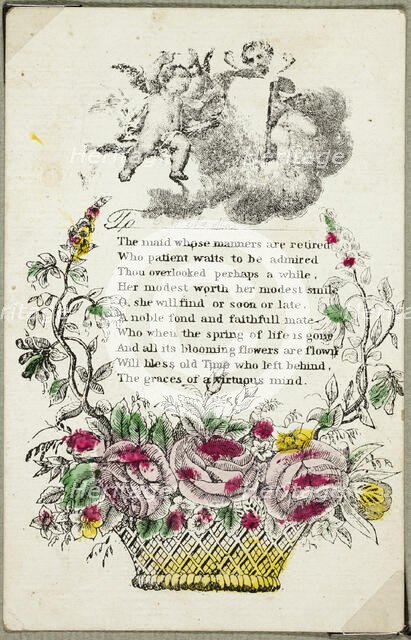 To
The maid whose manners are retired
Who patient waits to be admired
Thou overlooked perhaps a while,
Her modest worth her modest smile
O, she will find or soon or late.
A noble fond and faithfull mate
Who when the spring of life is gone
And all its blooming flowers are flown
Will bless old Time who left behind,
The graces of a virtuous mind.